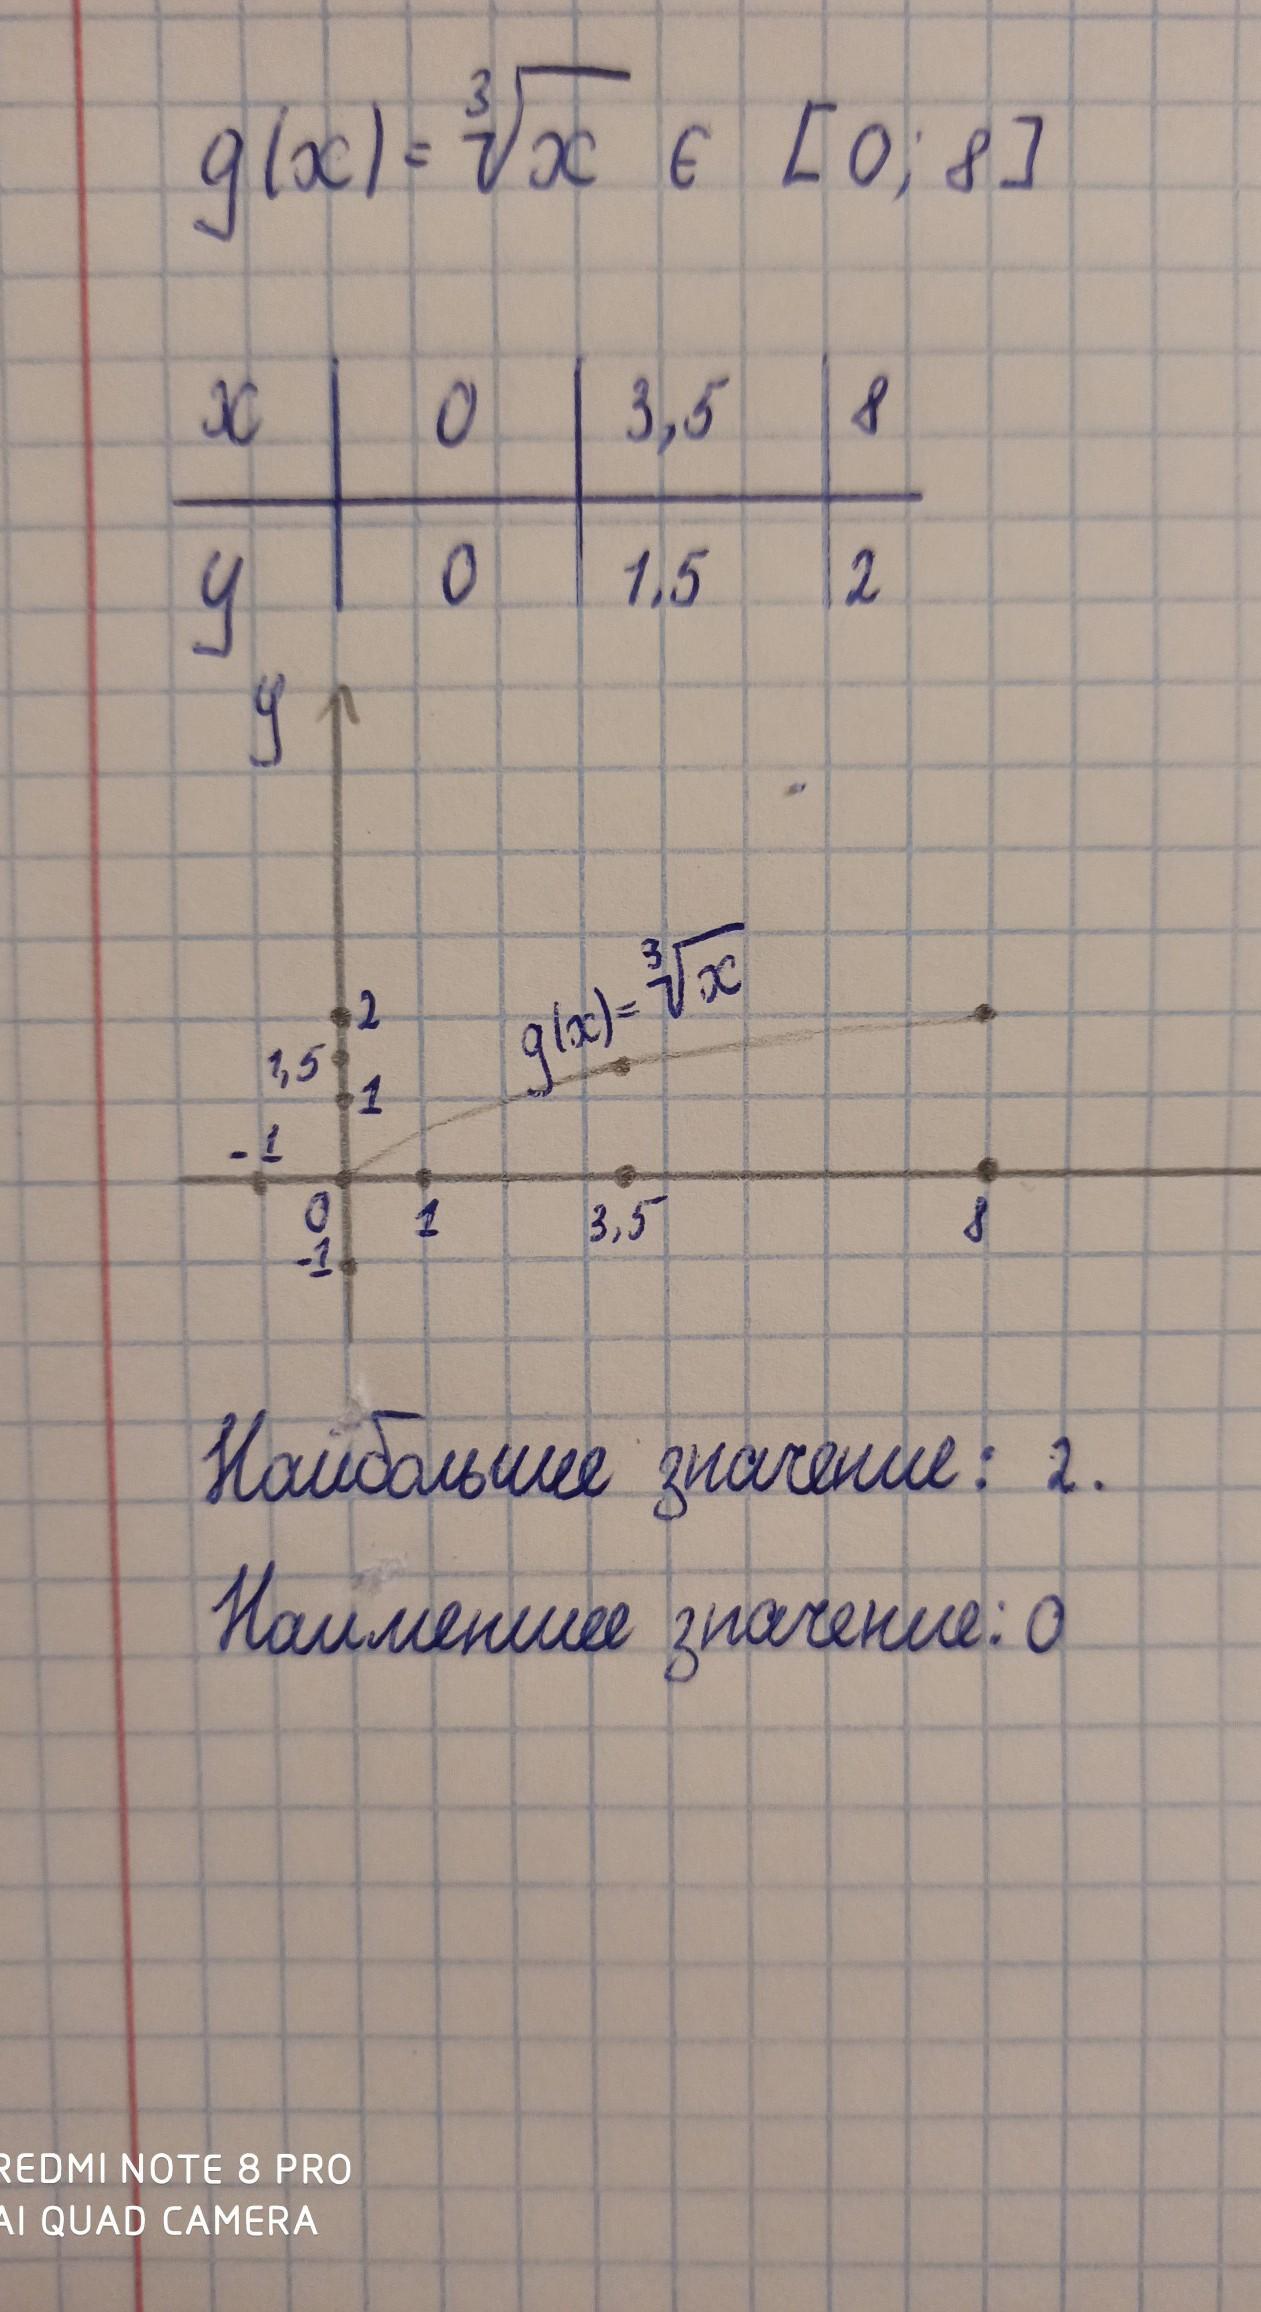 g(x) = ∛x ∈ [0; 8]
x 0 3,5 8
y 0 1,5 2
y
g(x) = ∛x
2
1,5
1
-1
0 1 3,5 8
-1
Наибольшее значение: 2.
Наименшее значение: 0
REDMI NOTE 8 PRO
AI QUAD CAMERA